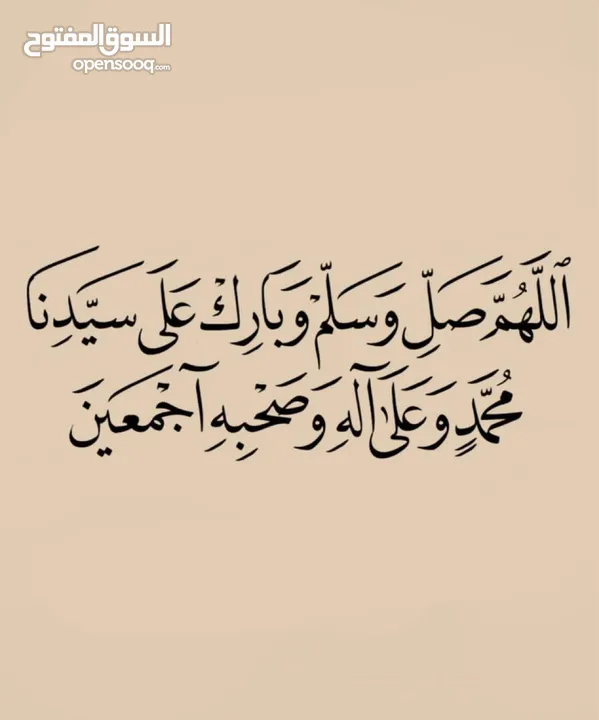 السوق المفتوح
opensooq.com
ٱللَّهُمَّ صَلِّ وَسَلِّمْ وَبَارِكْ عَلَى سَيِّدِنَا
مُحَمَّدٍ وَعَلَىٰ آلِهِ وَصَحْبِهِ آجْمَعِينَ